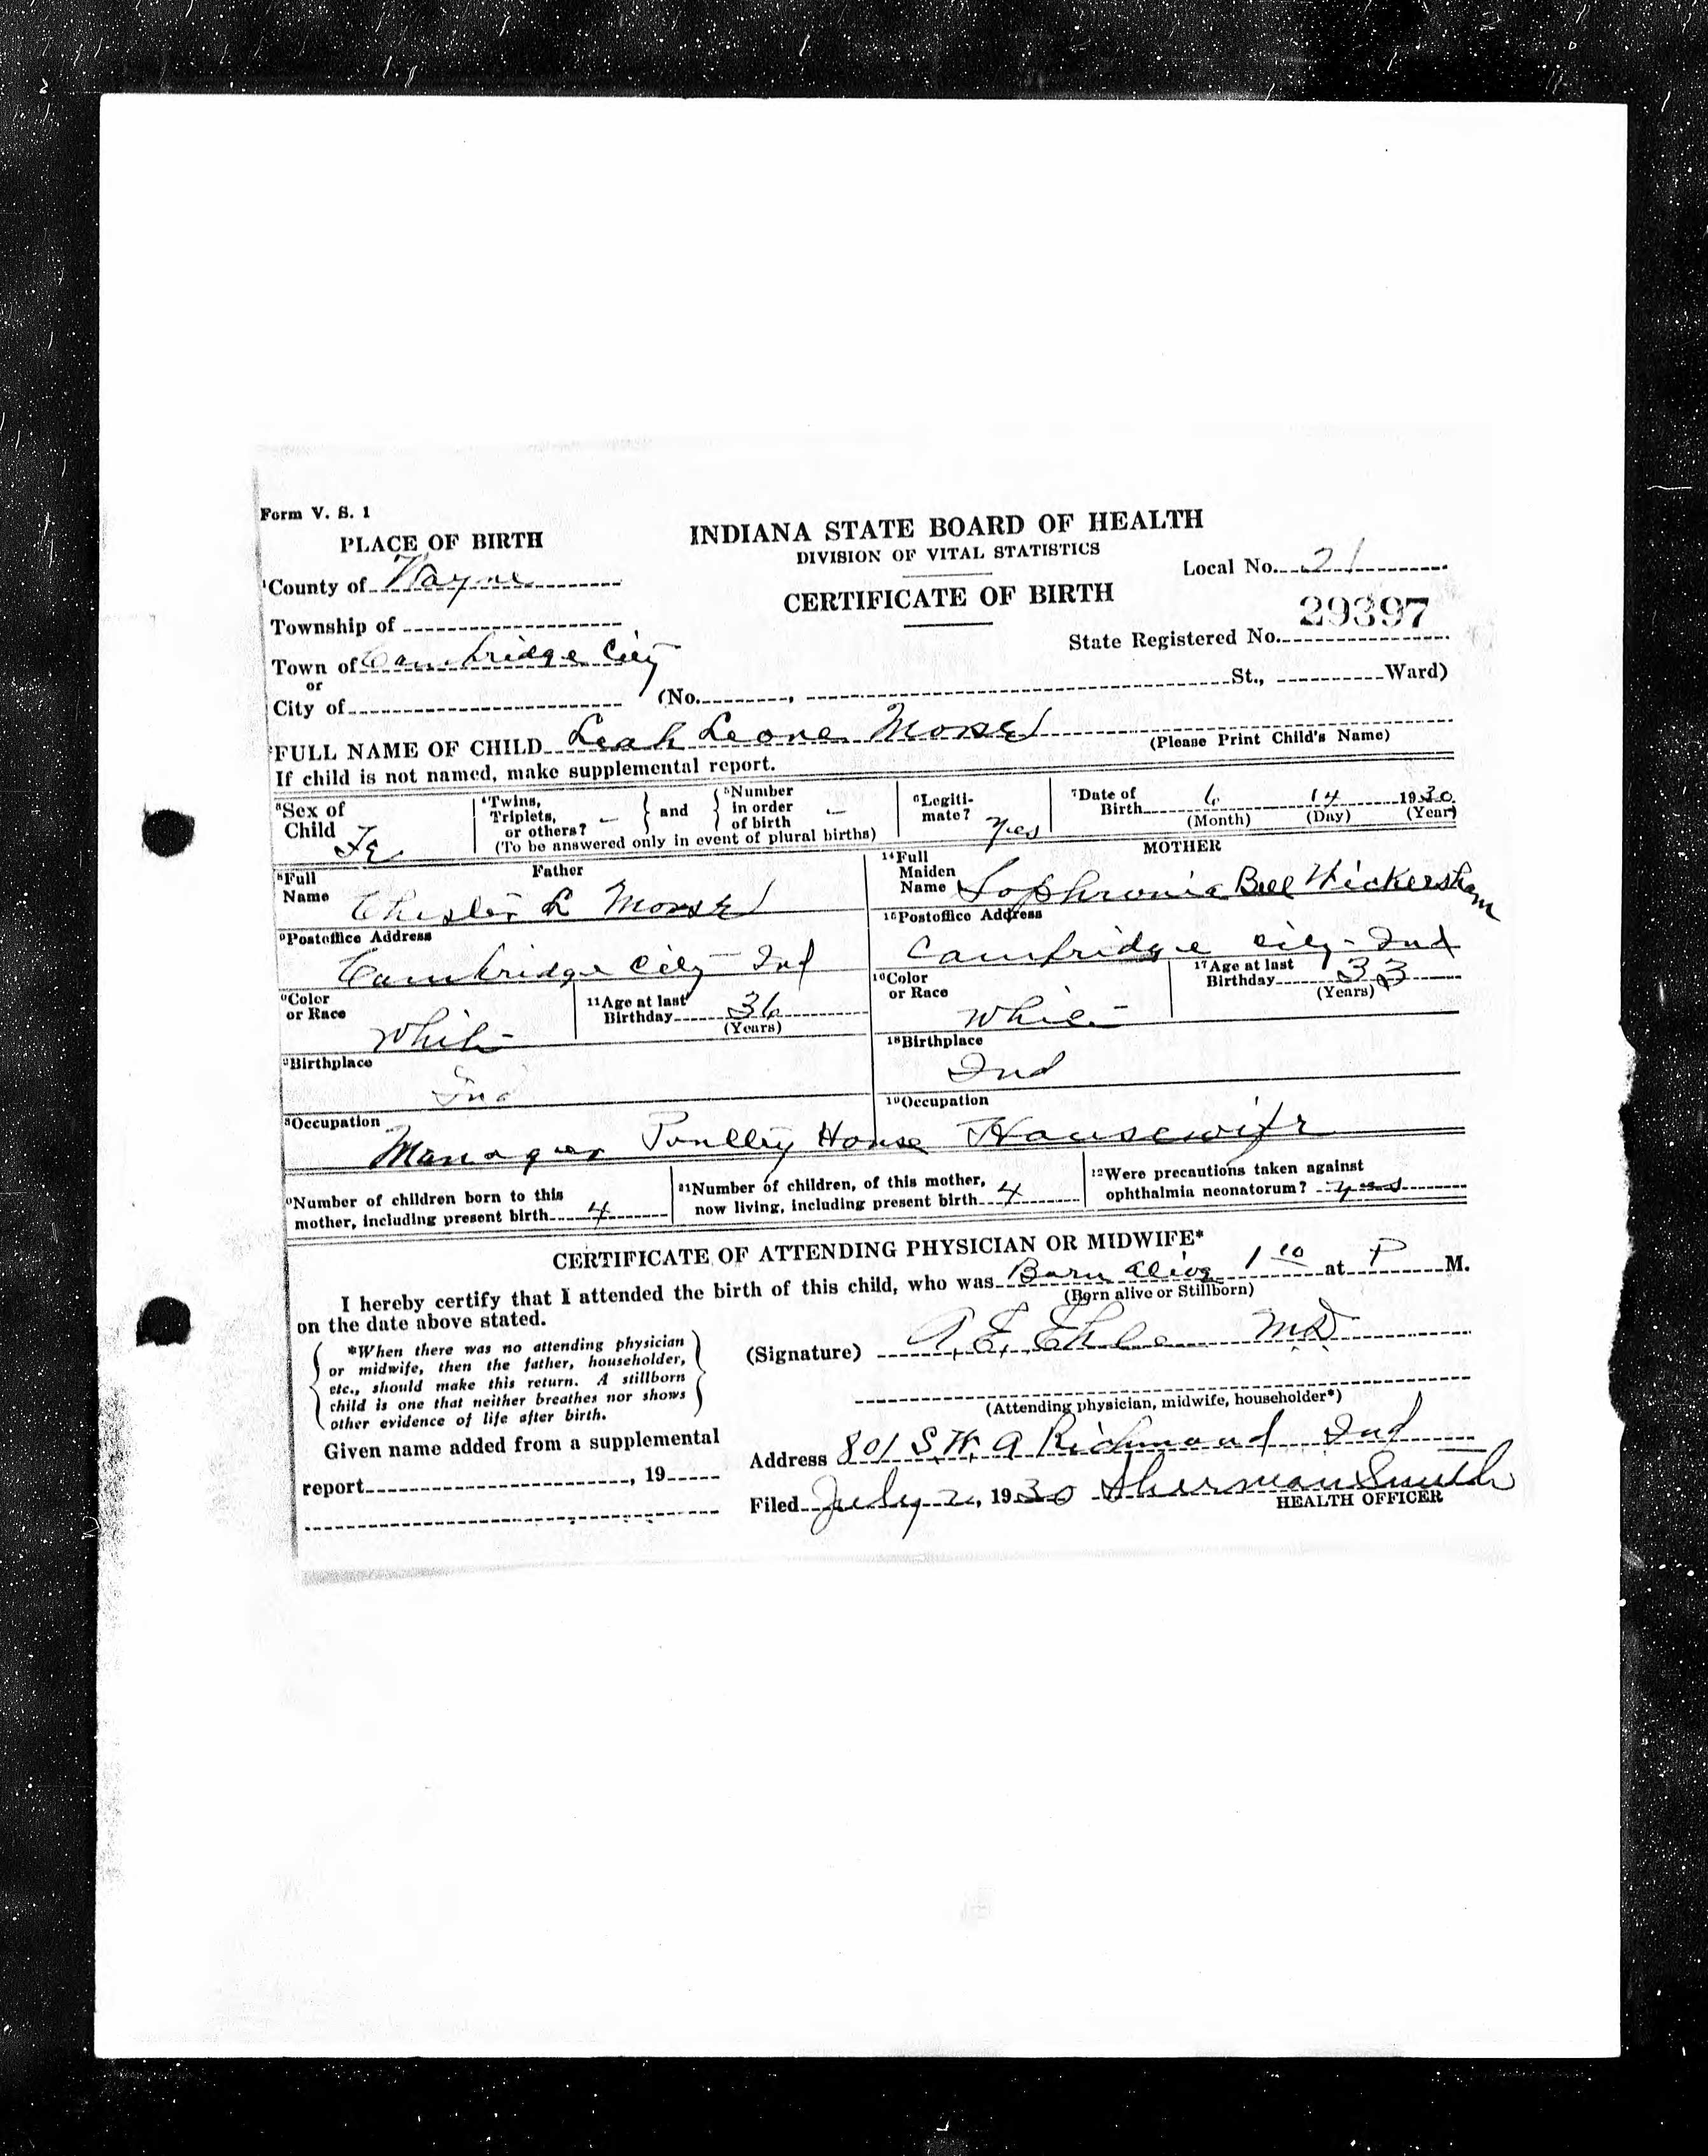 Form V. S. 1
PLACE OF BIRTH
INDIANA STATE BOARD OF HEALTH
DIVISION OF VITAL STATISTICS
¹County of Wayne
Local No. 21
CERTIFICATE OF BIRTH
Township of
29397
State Registered No.
Town of Cambridge City
or
City of
(No. , St., Ward)
FULL NAME OF CHILD Leah Leone
(Please Print Child's Name)
If child is not named, make supplemental report.
Sex of Child Fe
⁴Twins, Triplets, or others? –
and
⁵Number in order of birth –
(To be answered only in event of plural births)
⁶Legiti-mate? Yes
⁷Date of Birth 6 14 1930
(Month) (Day) (Year)
Father
MOTHER
⁸Full Name Chester L
¹⁴Full Maiden Name Sophronia Bell Wickersham
⁹Postoffice Address
Cambridge City Ind
¹⁵Postoffice Address
Cambridge City - Ind
Color or Race White
¹¹Age at last Birthday 36
(Years)
¹⁶Color or Race White
¹⁷Age at last Birthday 33
(Years)
Birthplace
Ind
¹⁸Birthplace
Ind
Occupation
Manager House
¹⁹Occupation
Housewife
Number of children born to this mother, including present birth 4
²¹Number of children, of this mother, now living, including present birth 4
Were precautions taken against ophthalmia neonatorum? yes
CERTIFICATE OF ATTENDING PHYSICIAN OR MIDWIFE*
I hereby certify that I attended the birth of this child, who was Born alive 1 10 at P M.
(Born alive or Stillborn)
on the date above stated.
*When there was no attending physician
or midwife, then the father, householder,
etc., should make this return. A stillborn
child is one that neither breathes nor shows
other evidence of life after birth.
(Signature) MD
(Attending physician, midwife, householder*)
Given name added from a supplemental
report , 19
Address 801 S. W. A Richmond Ind
Filed July 2, 1930 Sherman Smith
HEALTH OFFICER